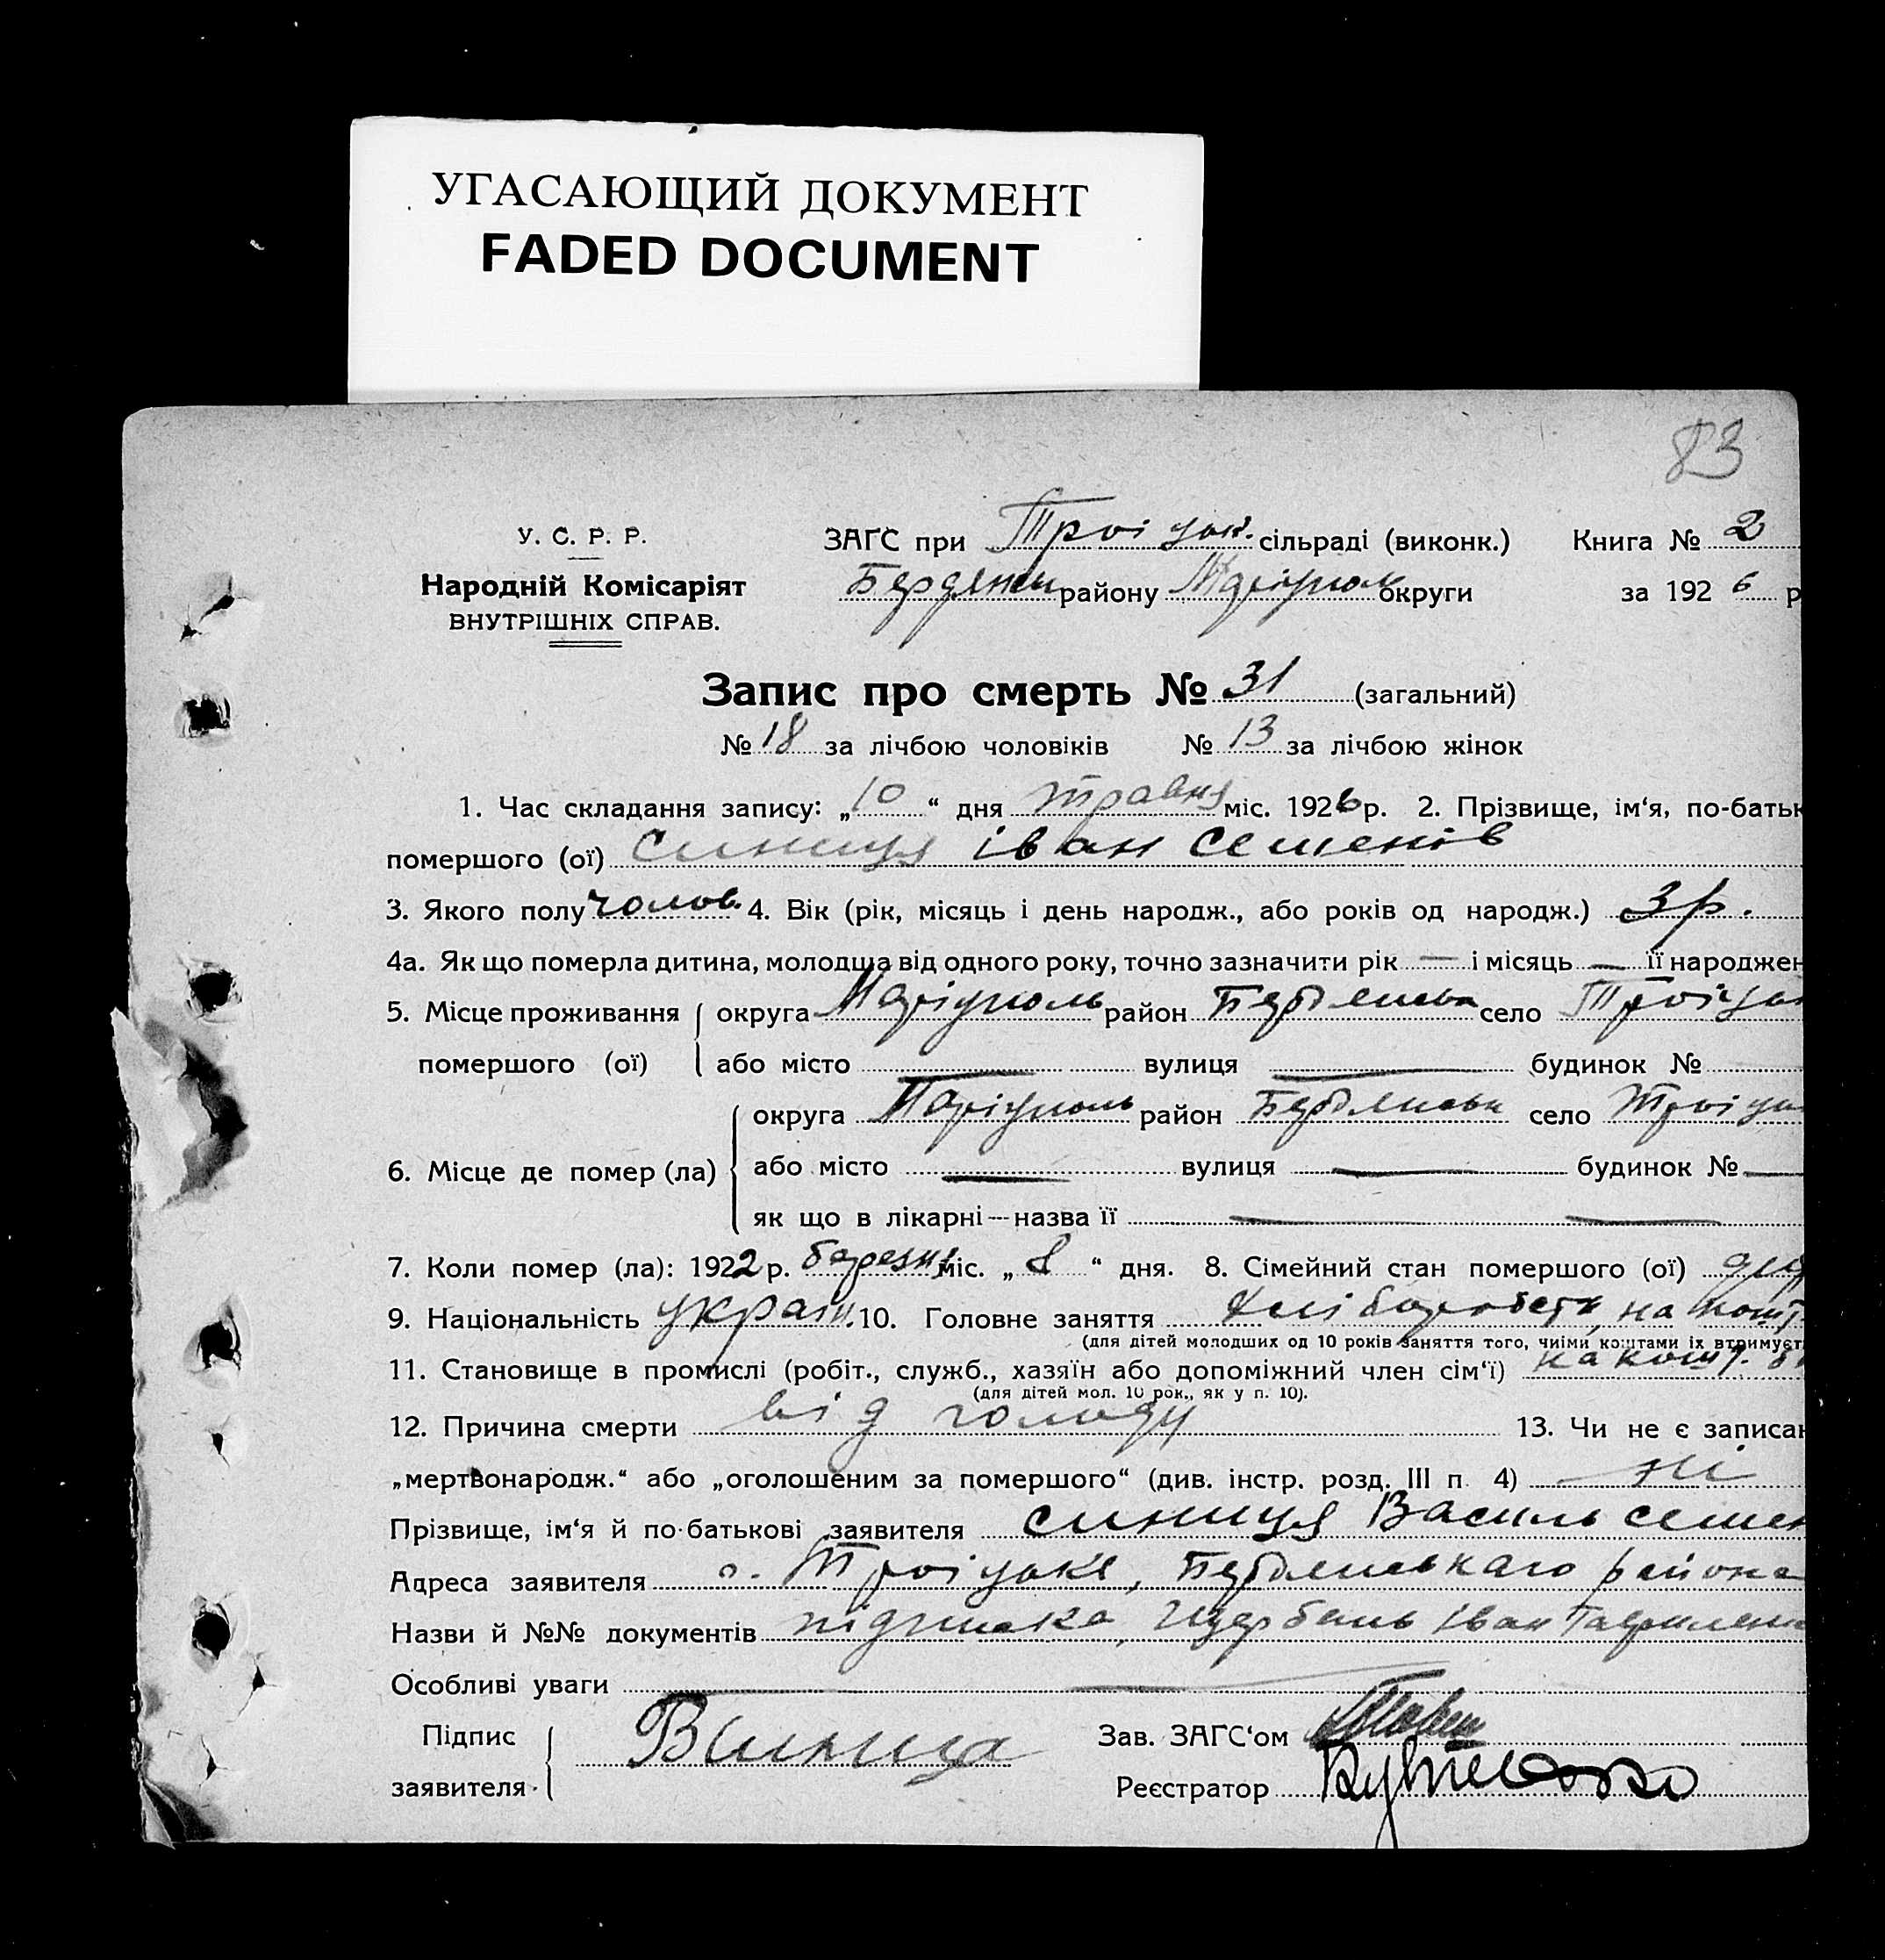 УГАСАЮЩИЙ ДОКУМЕНТ
FADED DOCUMENT
83
У. С. Р. Р.
Народній Комісаріят
ВНУТРІШНІХ СПРАВ.
ЗАГС при Троіцьк. сільраді (виконк.) Книга № 2
Бердянськ району Маріуполь округи за 1926 р
Запис про смерть № 31 (загальний)
№ 18 за лічбою чоловіків № 13 за лічбою жінок
1. Час складання запису: „10“ дня травня міс. 1926 р. 2. Прізвище, ім‘я, по-батьк
помершого (ої) Синиця Іван Семенів
3. Якого полу чолов. 4. Вік (рік, місяць і день народж., або років од народж.) 3 р.
4а. Як що померла дитина, молодша від одного року, точно зазначити рік — і місяць — її народжен
5. Місце проживання округа Маріуполь район Бердянськ село Троіцьк
помершого (ої) або місто — вулиця — будинок №
округа Маріуполь район Бердянськ село Троіцьк
6. Місце де помер (ла) або місто — вулиця — будинок № —
як що в лікарні — назва її — —
7. Коли помер (ла): 1922 р. березня міс. „8“ дня. 8. Сімейний стан помершого (ої)
9. Національність україн. 10. Головне заняття хліборобств, на кошт.
(для дітей молодших од 10 років заняття того, чиїми коштами їх втримует
11. Становище в промислі (робіт., служб., хазяїн або допоміжний член сім‘ї) на кошт.
(для дітей мол. 10 рок., як у п. 10).
12. Причина смерти від голоду 13. Чи не є записан
„мертвонародж.“ або „оголошеним за помершого“ (див. інстр. розд. III п. 4) ні
Прізвище, ім‘я й по-батькові заявителя Синиця Василь Семен
Адреса заявителя с. Троіцьке, Бердянськаго района
Назви й №№ документів підписка, Щербань Іван Гаврилен
Особливі уваги —
Підпис заявителя ВСиница
Зав. ЗАГС‘ом
Реєстратор